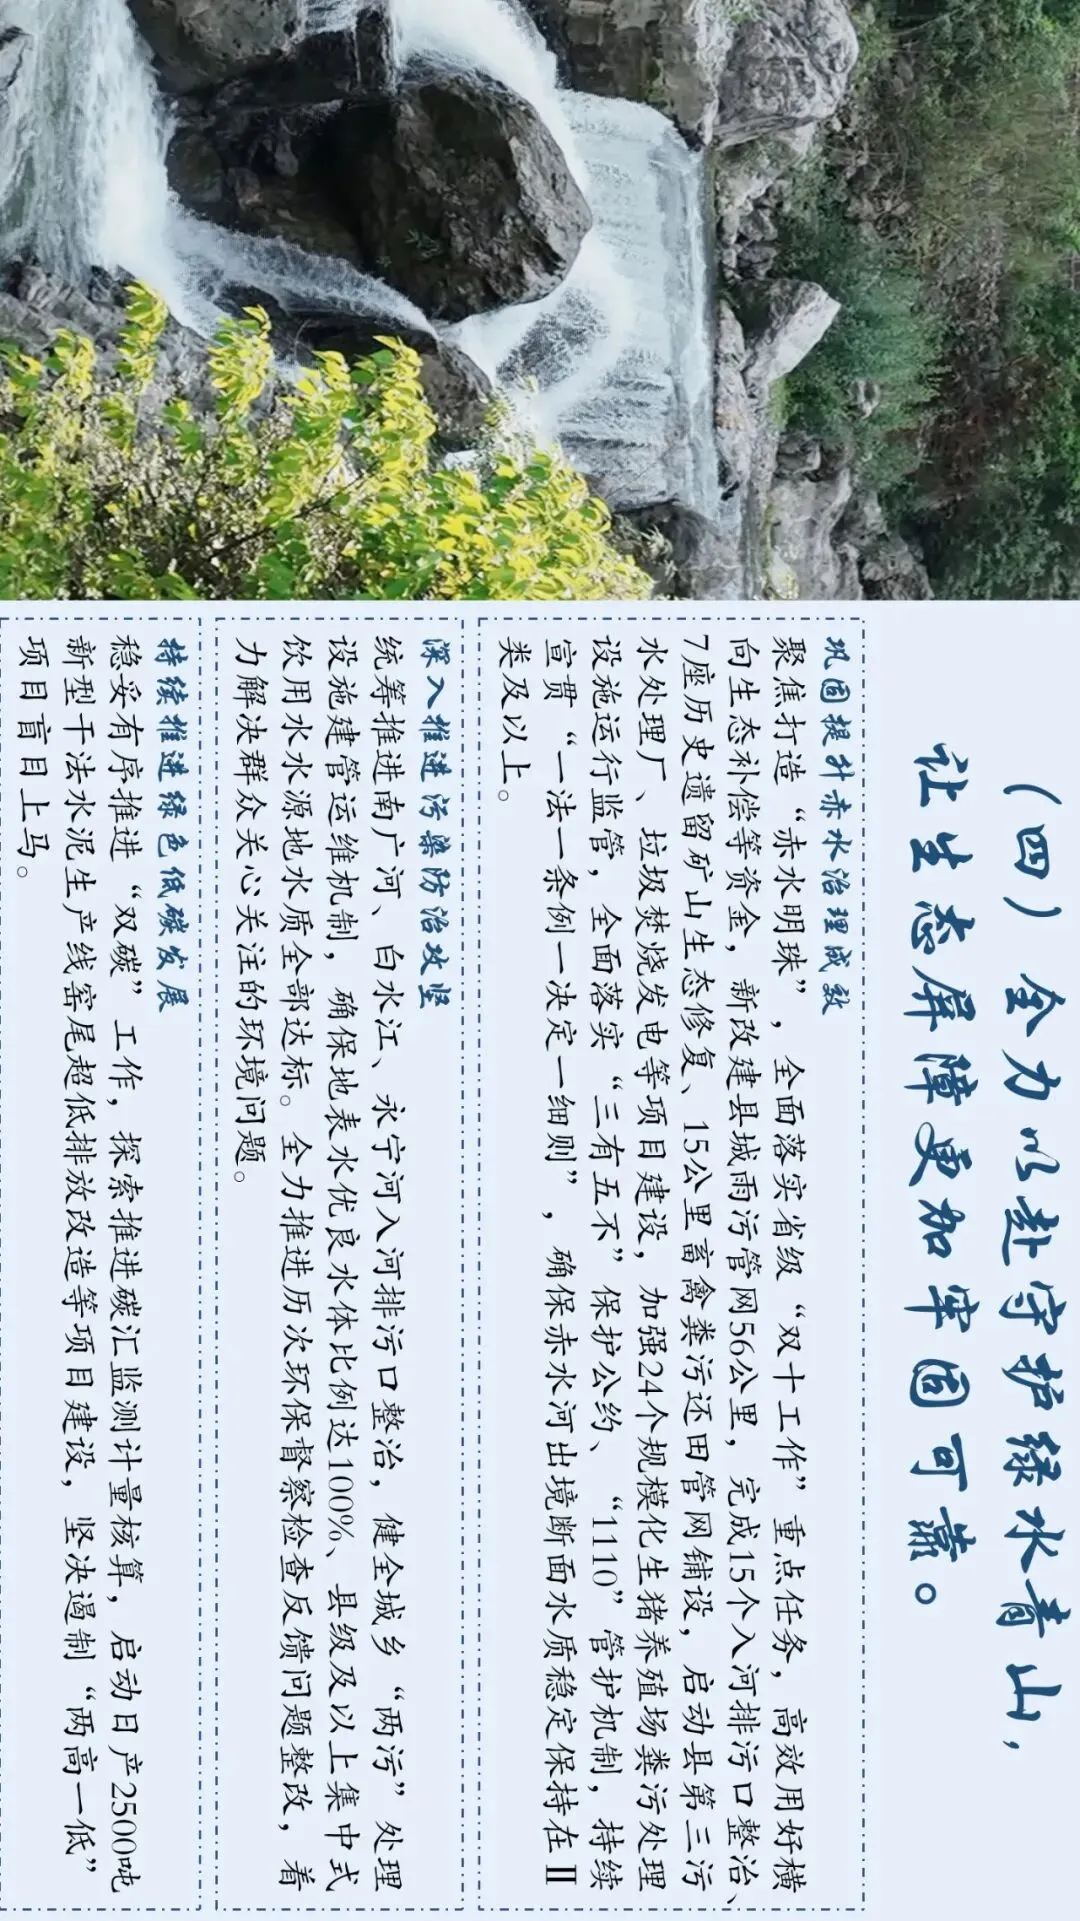 （四）全力以赴守护绿水青山，
让生态屏障更加牢固可靠。
巩固提升赤水治理成效
聚焦打造“赤水明珠”，全面落实省级“双十工作”重点任务，高效用好横
向生态补偿等资金，新改建县城雨污管网56公里，完成15个入河排污口整治、
7座历史遗留矿山生态修复、15公里畜禽粪污还田管网铺设，启动县第三污
水处理厂、垃圾焚烧发电等项目建设，加强24个规模化生猪养殖场粪污处理
设施运行监管，全面落实“三有五不”保护公约、“1110”管护机制，持续
宣贯“一法一条例一决定一细则”，确保赤水河出境断面水质稳定保持在Ⅱ
类及以上。
深入推进污染防治攻坚
统筹推进南广河、白水江、永宁河入河排污口整治，健全城乡“两污”处理
设施建管运维机制，确保地表水优良水体比例达100%、县级及以上集中式
饮用水水源地水质全部达标。全力推进历次环保督察检查反馈问题整改，着
力解决群众关心关注的环境问题。
持续推进绿色低碳发展
稳妥有序推进“双碳”工作，探索推进碳汇监测计量核算，启动日产2500吨
新型干法水泥生产线窑尾超低排放改造等项目建设，坚决遏制“两高一低”
项目盲目上马。